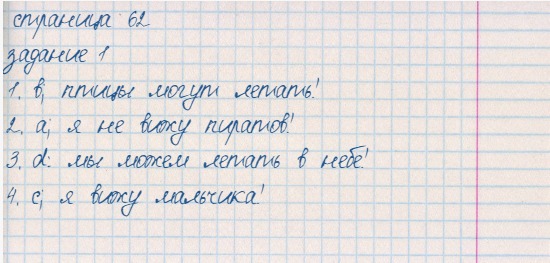 страница 62
задание 1
1. в; птицы могут летать!
2. а; я не вижу пиратов!
3. d: мы можем летать в небе!
4. с; я вижу мальчика!